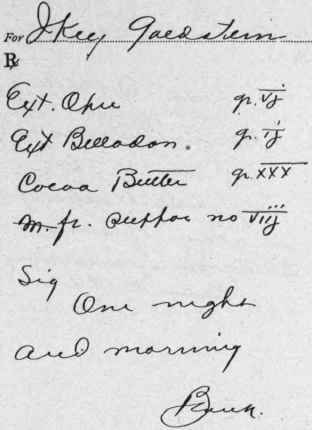 For Ikey Goldstein
℞
Ext. Opii gr. vj
Ext Belladon. gr. ij
Cocoa Butter gr. xxx
M. ft. suppos no viij
Sig
One night
and morning